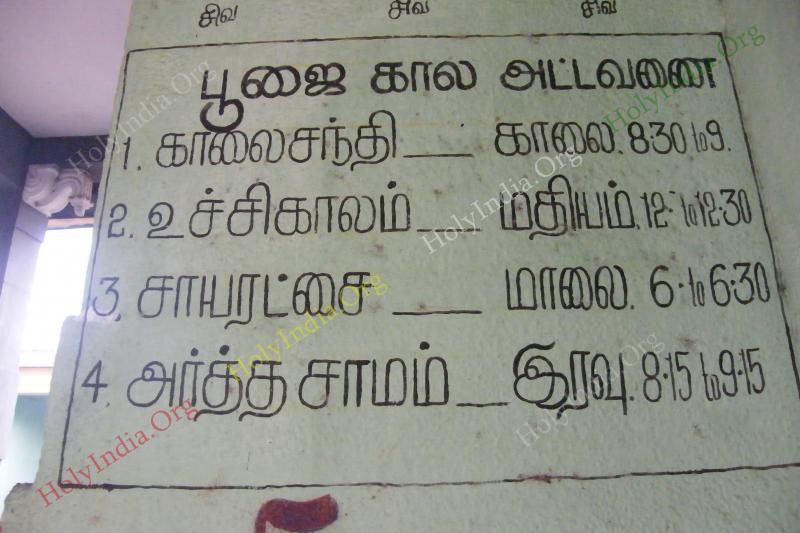 சிவ சிவ சிவ
பூஜை கால அட்டவணை
1. காலைசந்தி ___ காலை. 8.30 to 9.
2. உச்சிகாலம் ___ மதியம். 12.- to 12.30
3. சாயரட்சை ___ மாலை. 6. to 6.30
4. அர்த்த சாமம் __ இரவு. 8.15 to 9.15
HolyIndia.Org
HolyIndia.Org
HolyIndia.Org
HolyIndia.Org
HolyIndia.Org
HolyIndia.Org